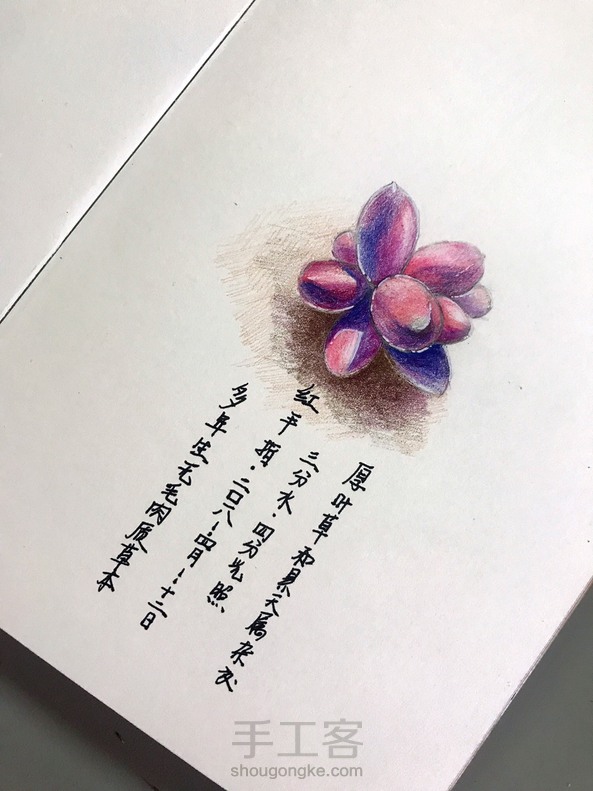 厚叶草和景天属杂交
三分水·四分光照
红手指·二〇八·四月·十二日
多年生无毛肉质草本
手工客
shougongke.com